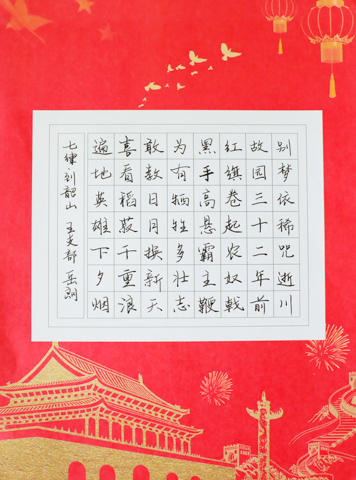 别梦依稀咒逝川
故园三十二年前
红旗卷起农奴戟
黑手高悬霸主鞭
为有牺牲多壮志
敢教日月换新天
喜看稻菽千重浪
遍地英雄下夕烟
七律 到韶山